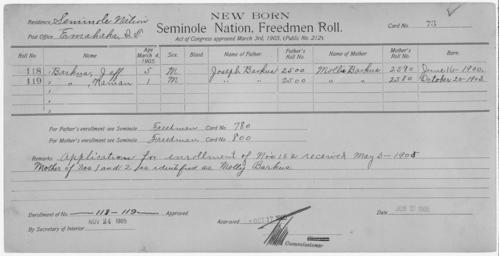 NEW BORN
Residence Seminole Nation Seminole Nation, Freedmen Roll. Card No. 73
Post Office Emahaka, I.T. Act of Congress approved March 3rd, 1905, (Public No. 212).
Roll No. Name Age March 4, 1905 Sex. Blood. Name of Father Father's Roll No. Name of Mother Mother's Roll No. Born.
118 Barkus, Jeff 5 M Joseph Barkus 2500 Mollie Barkus June 16-1900
119 " " 1 M " " 2500 " " 2580 October 20
For Father's enrollment see Seminole Freedman Card No. 780
For Mother's enrollment see Seminole Freedman Card No. 800
Remarks Application for enrollment of Nos 1&2 received May 3-1905
Mother of Nos 1 and 2 is identified as Molly Barkus
Enrollment of No. 118-119 Approved
by Secretary of Interior NOV 24 1905
Approved OCT 17
Commissioner
Date